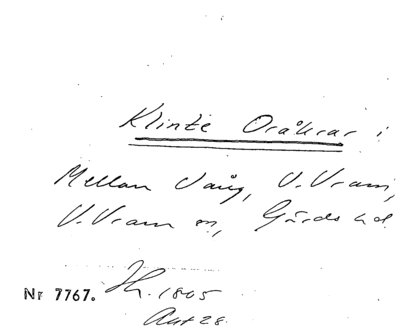 Klinte Oråkrar i
Mellan Vång, V. Vram,
V. Vram sn, Gärds hd.
Nr 7767. Th. 1805
Akt 28.